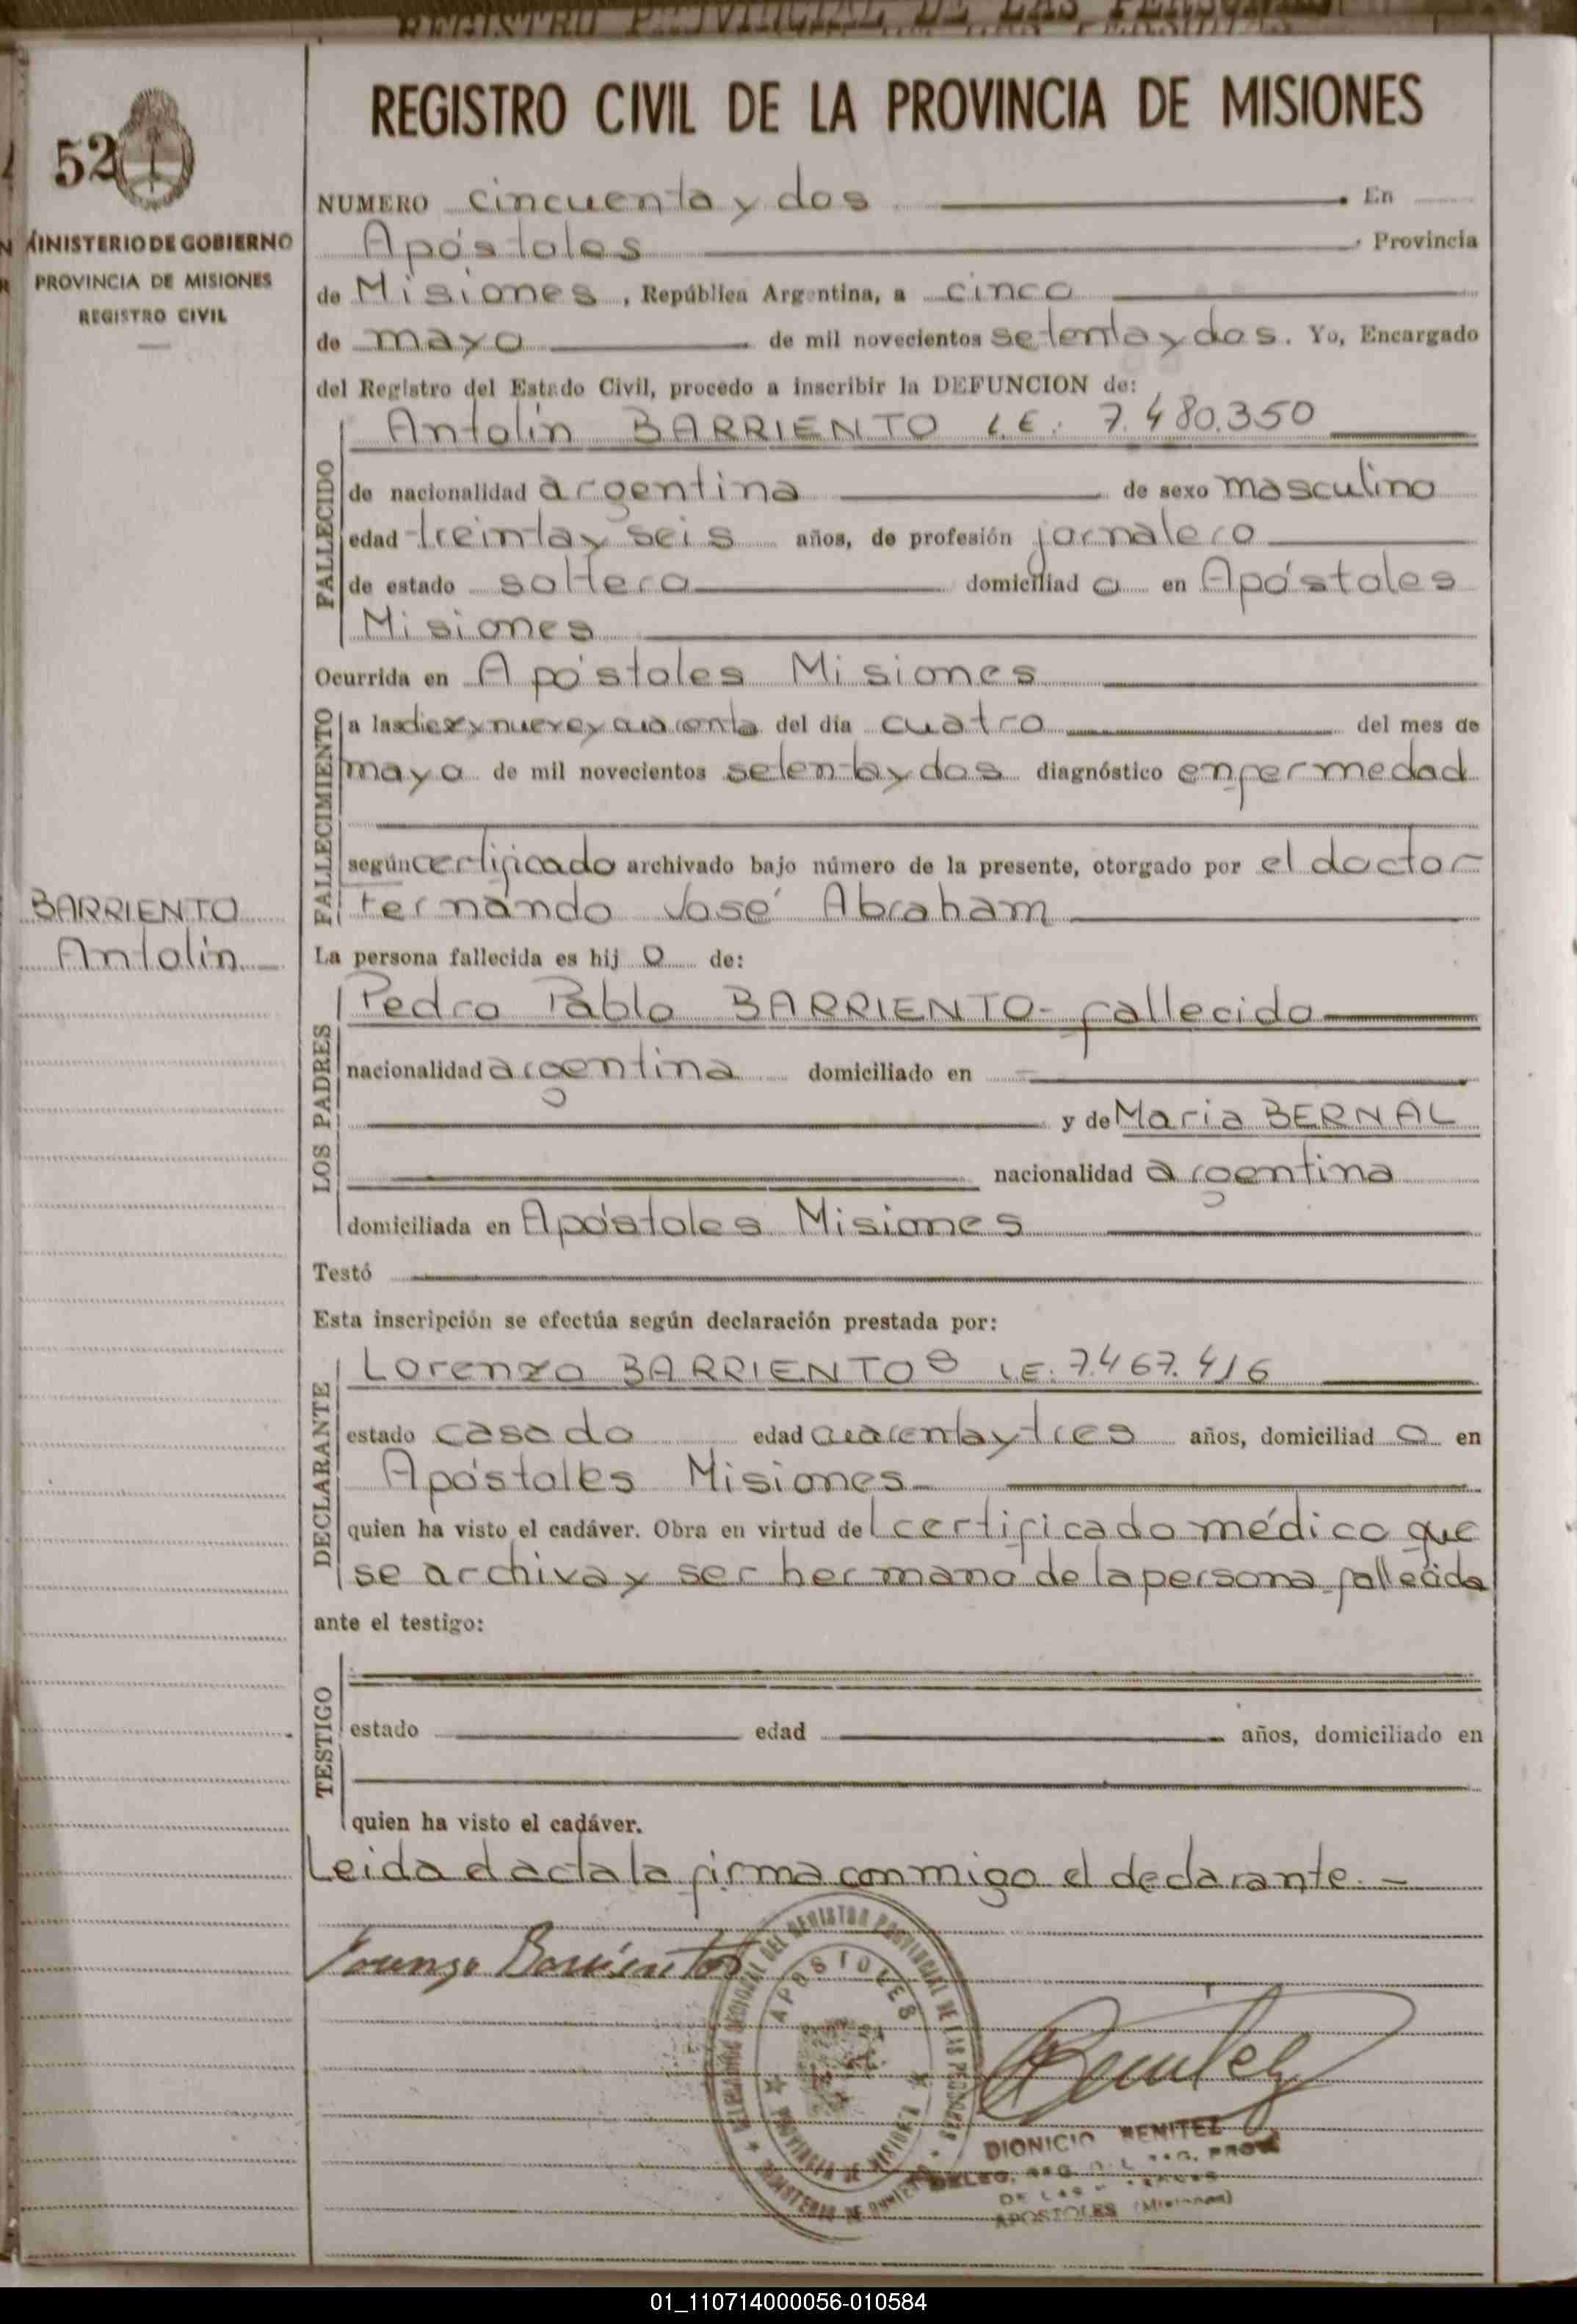 REGISTRO PROVINCIAL DE LAS PERSONAS
52
MINISTERIO DE GOBIERNO
PROVINCIA DE MISIONES
REGISTRO CIVIL
BARRIENTO
Antolín
REGISTRO CIVIL DE LA PROVINCIA DE MISIONES
NUMERO cincuenta y dos . En
Apóstoles , Provincia
de Misiones , República Argentina, a cinco
de mayo de mil novecientos setenta y dos. Yo, Encargado
del Registro del Estado Civil, procedo a inscribir la DEFUNCION de:
FALLECIDO
Antolín BARRIENTO L.E: 7.480.350
de nacionalidad argentina de sexo masculino
edad treinta y seis años, de profesión jornalero
de estado soltero domiciliad o en Apóstoles
Misiones
Ocurrida en Apóstoles Misiones
FALLECIMIENTO
a las diez y nueve y cuarenta del día cuatro del mes de
mayo de mil novecientos setenta y dos diagnóstico enfermedad
según certificado archivado bajo número de la presente, otorgado por el doctor
Fernando José Abraham
La persona fallecida es hij o de:
LOS PADRES
Pedro Pablo BARRIENTO- fallecido
nacionalidad argentina domiciliado en
y de María BERNAL
nacionalidad argentina
domiciliada en Apóstoles Misiones
Testó
Esta inscripción se efectúa según declaración prestada por:
DECLARANTE
Lorenzo BARRIENTOS L.E: 7.467.416
estado casado edad cuarenta y tres años, domiciliad o en
Apóstoles Misiones
quien ha visto el cadáver. Obra en virtud del certificado médico que
se archiva y ser hermano de la persona fallecida
ante el testigo:
TESTIGO
estado edad años, domiciliado en
quien ha visto el cadáver.
Leida el acta la firma conmigo el declarante. -
Lorenzo Barrientos
DEL REGISTRO PROVINCIAL DE LAS PERSONAS
APOSTOLES
PROVINCIA DE MISIONES
MINISTERIO DE GOBIERNO
Benitez
DIONICIO BENITEZ
APOSTOLES (Misiones)
01_110714000056-010584